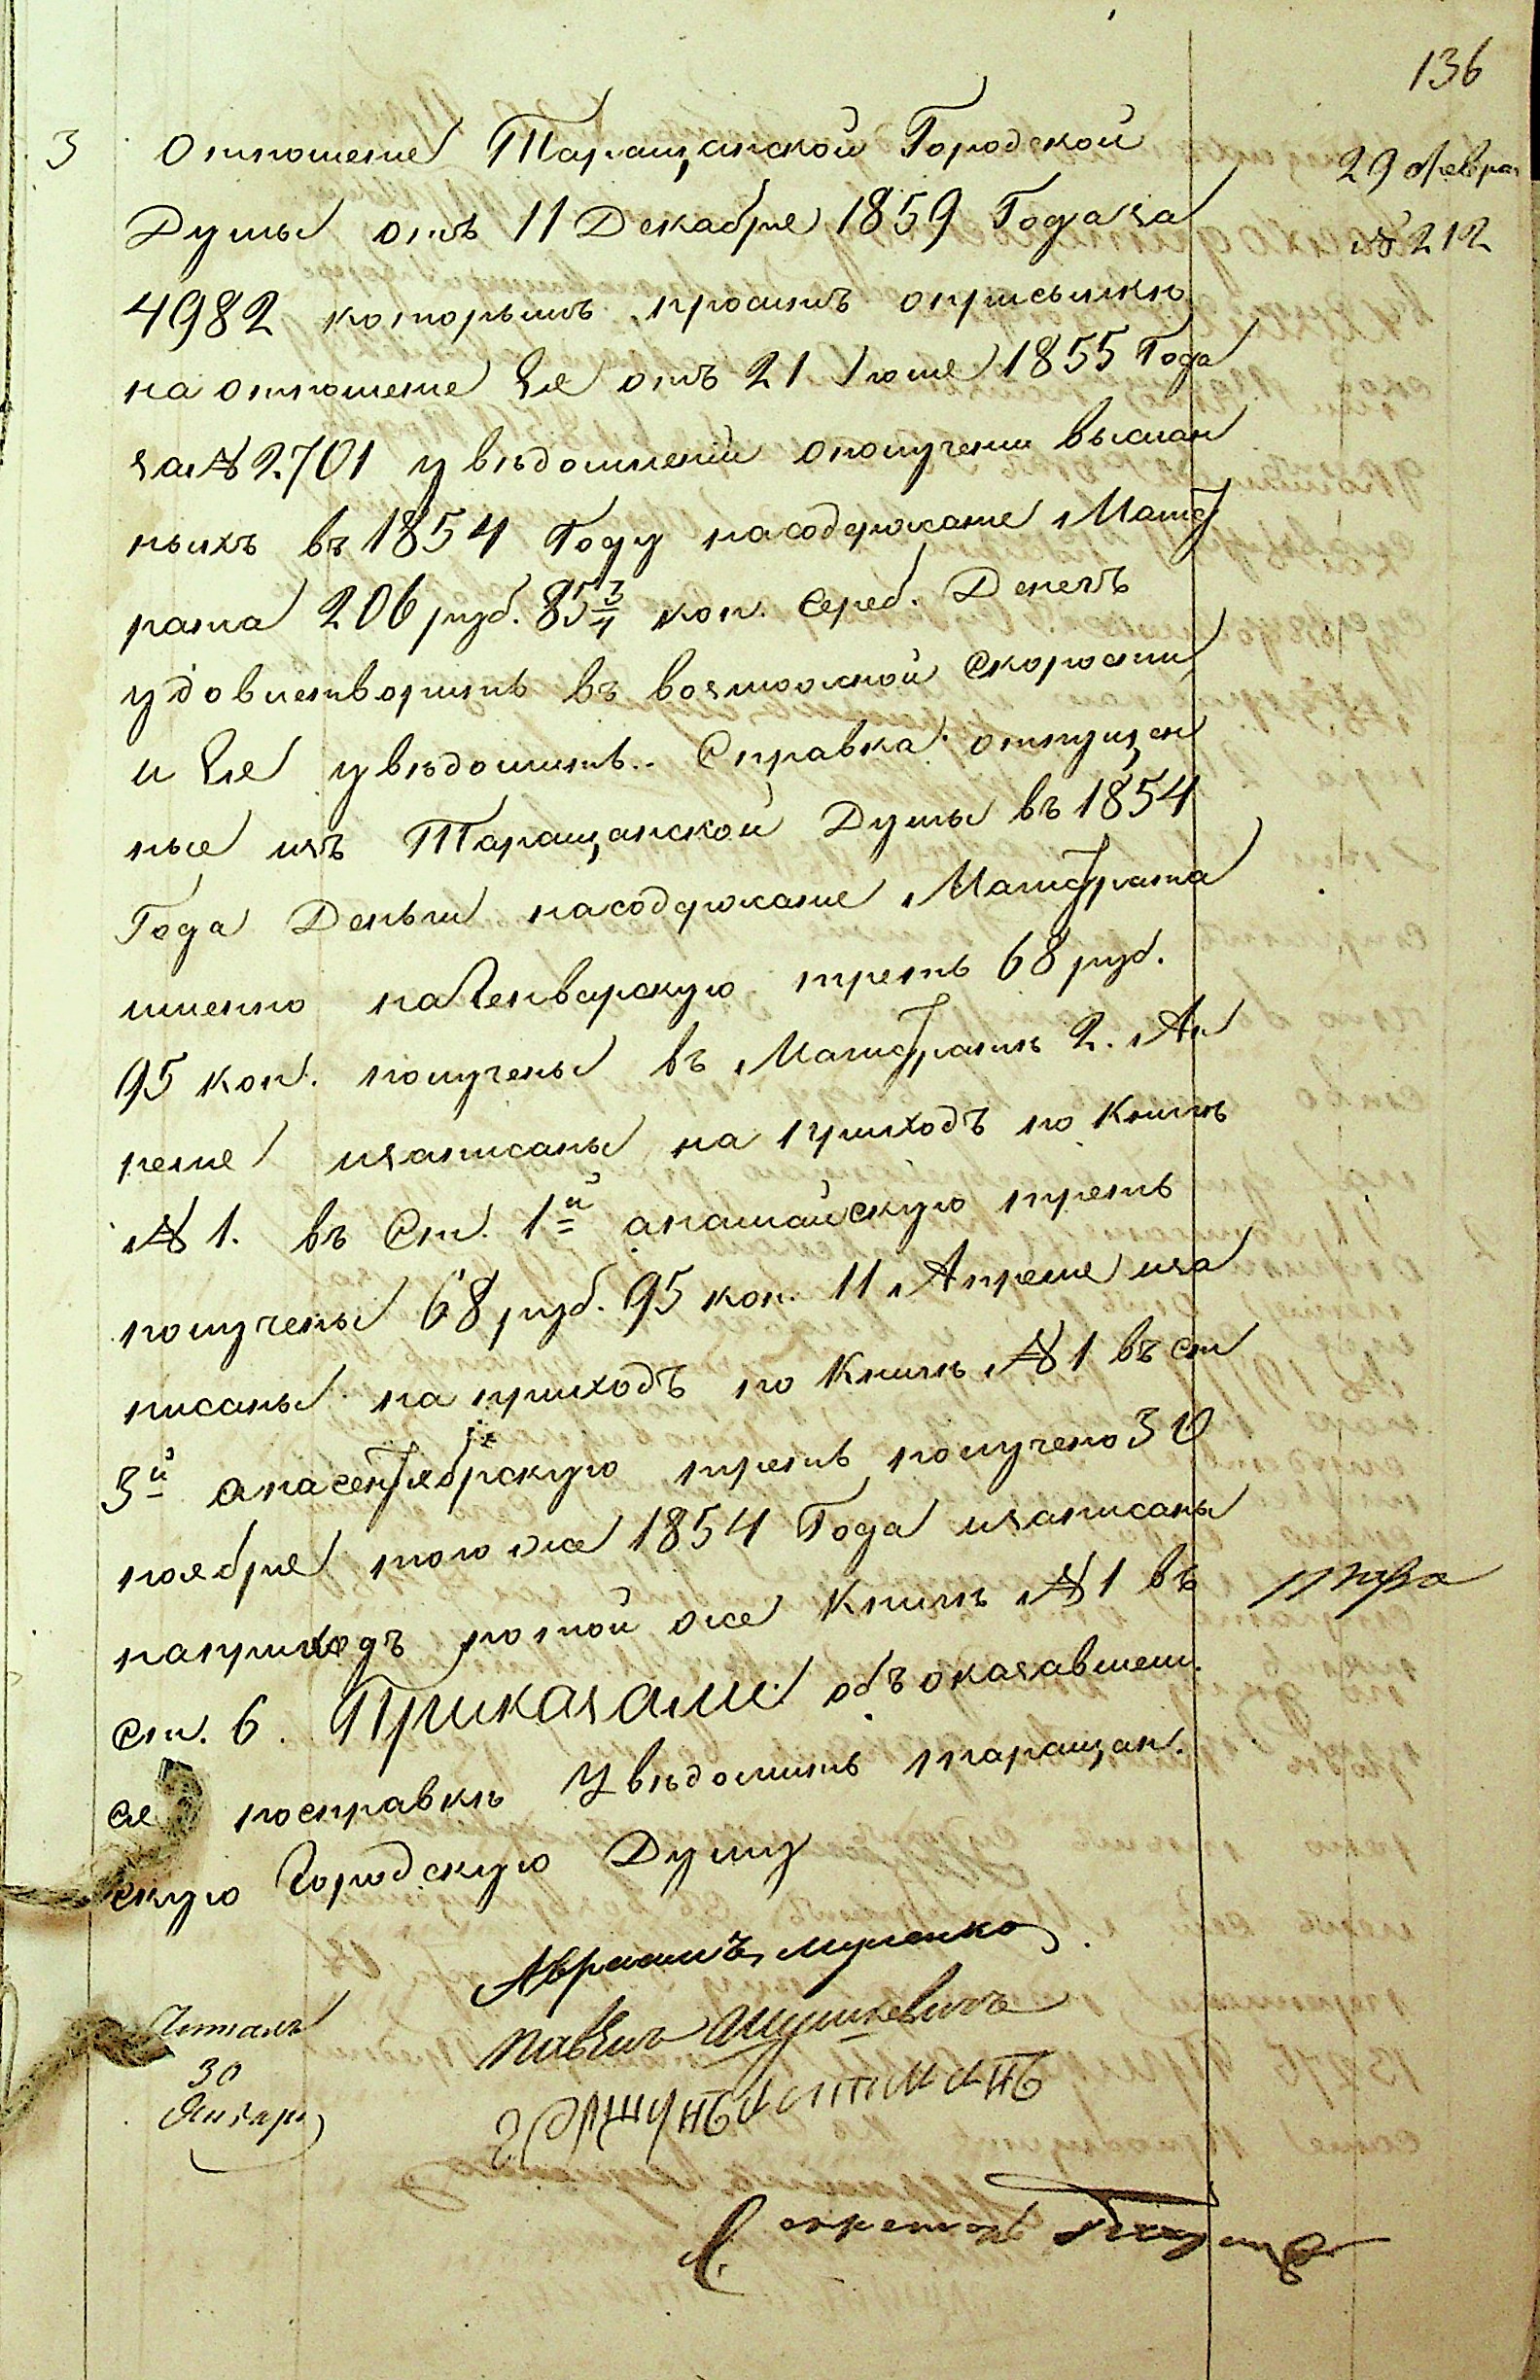 136
3 Отношение Таращанской Городской
29 Февра
Думы отъ 11 Декабря 1859 Года за
№ 212
4982 которымъ проситъ оприсылкѣ
на отношение Ея отъ 21 Июня 1855 Года
за № 2701 увѣдомленій ополучении выслан
ныхъ въ 1854 Году насодержание Магист
рата 206 руб. 85 3/4 коп. Сереб. Денегъ
удовлетворить въ возможной Скорости
и Ея увѣдомить. Справка отпущен
ные изъ Таращанской Думы въ 1854
Года Деньги насодержание Магистрата
именно наГенварскую треть 68 руб.
95 коп. получены въ Магистратѣ 2. Ап
реля изаписаны на приходъ по Книгѣ
№ 1. въ Ст. 1й анамайскую треть
получены 68 руб. 95 коп. 11 Апреля иза
писаны на приходъ по Книгѣ № 1 въ ст
3й анасентябрскую треть получено 30
ноября того же 1854 Года изаписаны
наприходъ потой же Книгѣ № 1 въ
ст. 6. Приказали: объ оказавшем.
ся посправкѣ Увѣдомить таращан.
скую Городскую Думу
Авраамъ
Павелъ
Читалъ
30
Января
Гершунъ
Секретарь